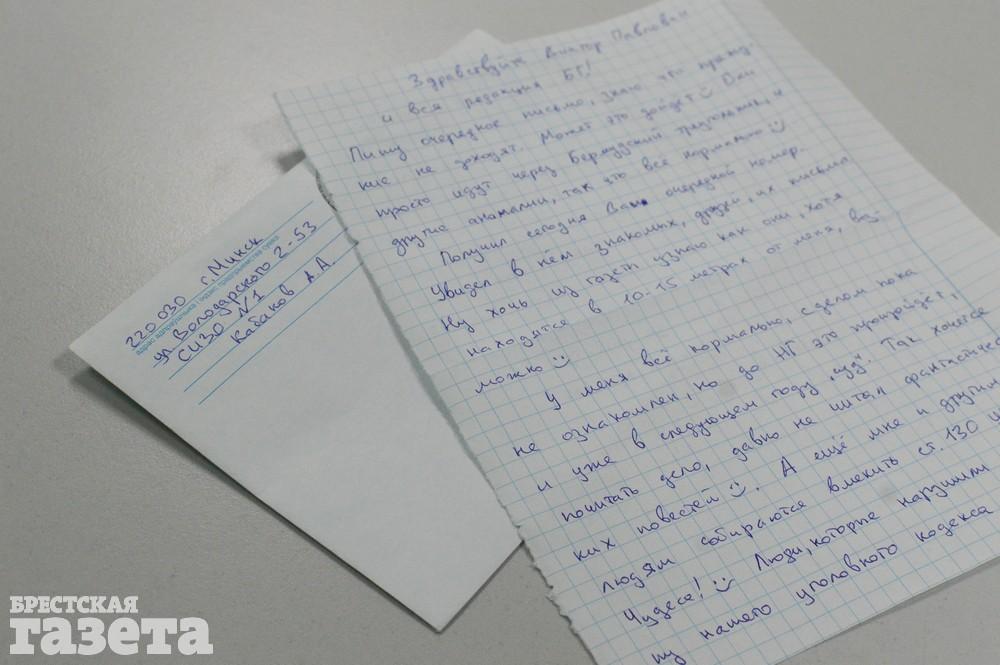 220030 г. Минск
ул. Володарского 2-53
СИЗО №1
Кабаков А.А.
Здравствуйте Виктор Павлович
и вся редакция БГ!
Пишу очередное письмо, знаю что преды-
кие не доходят. Может это дойдёт☺ Они
просто идут через Бермудский треугольник, и
другие аномалии, так что всё нормально☺
Получил сегодня Ваш очередной номер.
Увидел в нём знакомых, друзей, их письма
Ну хоть из газет узнаю как они, хотя
находятся в 10-15 метрах от меня,
можно☺
У меня всё нормально, с делом пока
не ознакомлен, но до НГ это произойдёт,
и уже в следующем году „суд“. Так хочется
почитать дело, давно не читал фантастичес
ких повестей☺. А ещё мне и другим
людям собираются вменить ст. 130 и
Чудеса!☺ Люди, которые нарушили
ну нашего уголовного кодекса
БРЕСТСКАЯ
газета